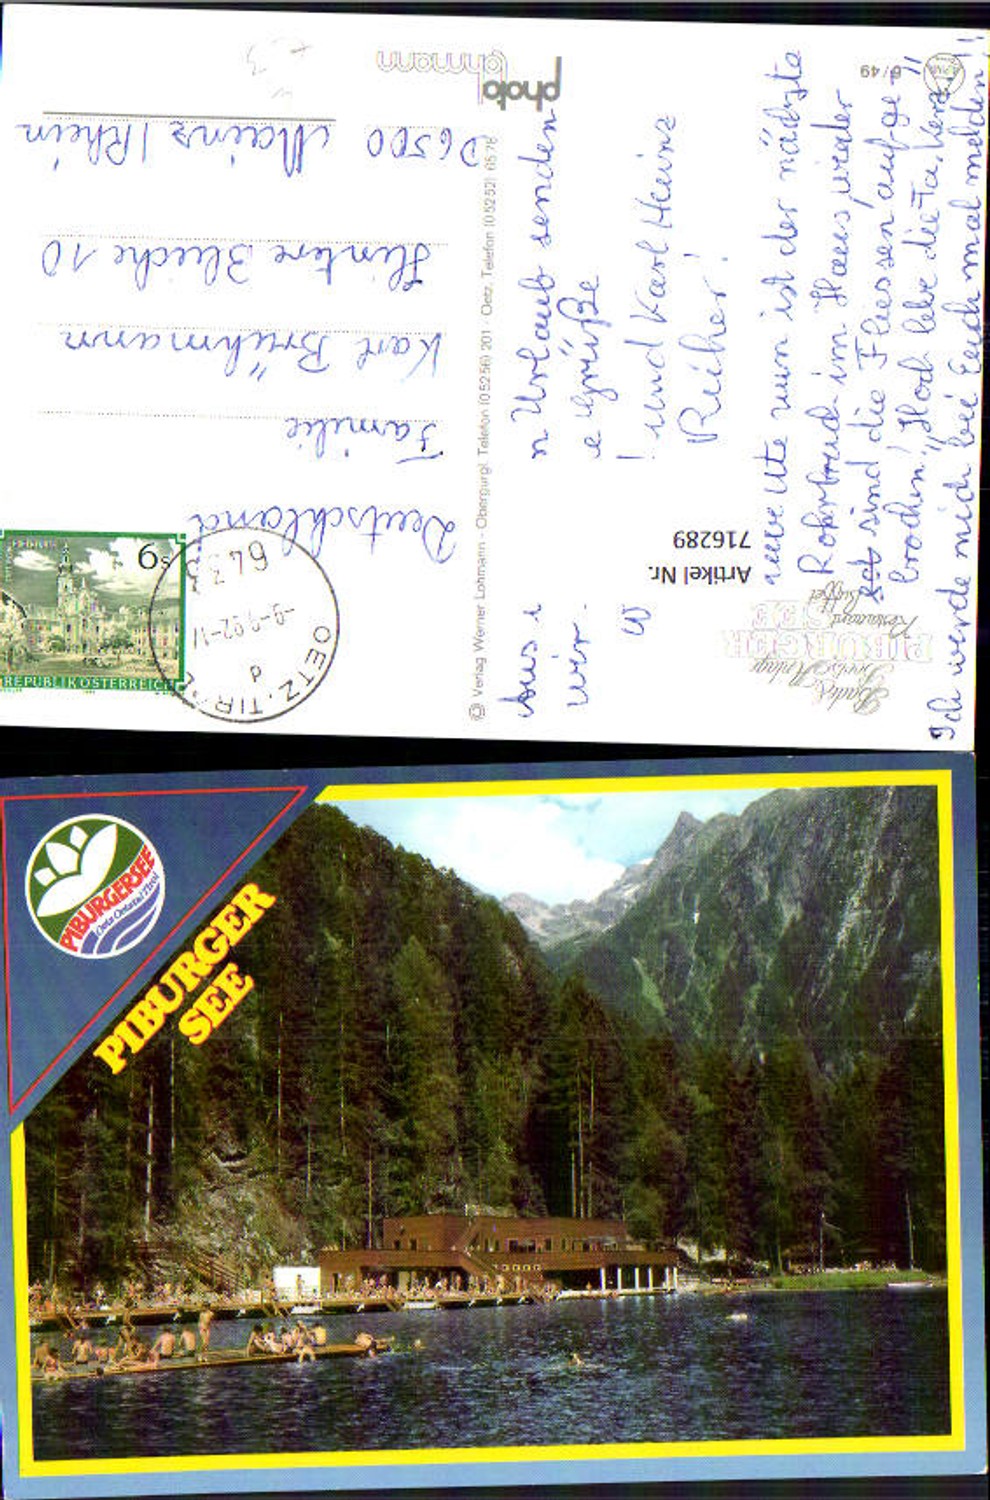 Bade-
Freizeit-Anlage
PIBURGER
SEE
Restaurant
Buffet
6/49
Artikel Nr.
716289
Aus
n Urlaub senden
wir
e Grüße
W
! und Karl Heinz
Rüher!
nun ist der nächste
Rohrbruch im Haus, wieder
sind die Fliessen aufge-
brochen! „Hoch lebe die Fa.
Ich werde mich bei Euch mal melden!!
photo
lohmann
© Verlag Werner Lohmann - Obergurgl, Telefon (05256) 201 - Oetz, Telefon (05252) 6578
REPUBLIK ÖSTERREICH
6 S
OETZ, TIROL
6433
-9.-9.92-17
d
Deutschland
Familie
Karl Brühmann
Hintere Bleiche 10
D 6500 Mainz / Rhein
PIBURGERSEE
Oetz Ötztal Tirol
PIBURGER
SEE